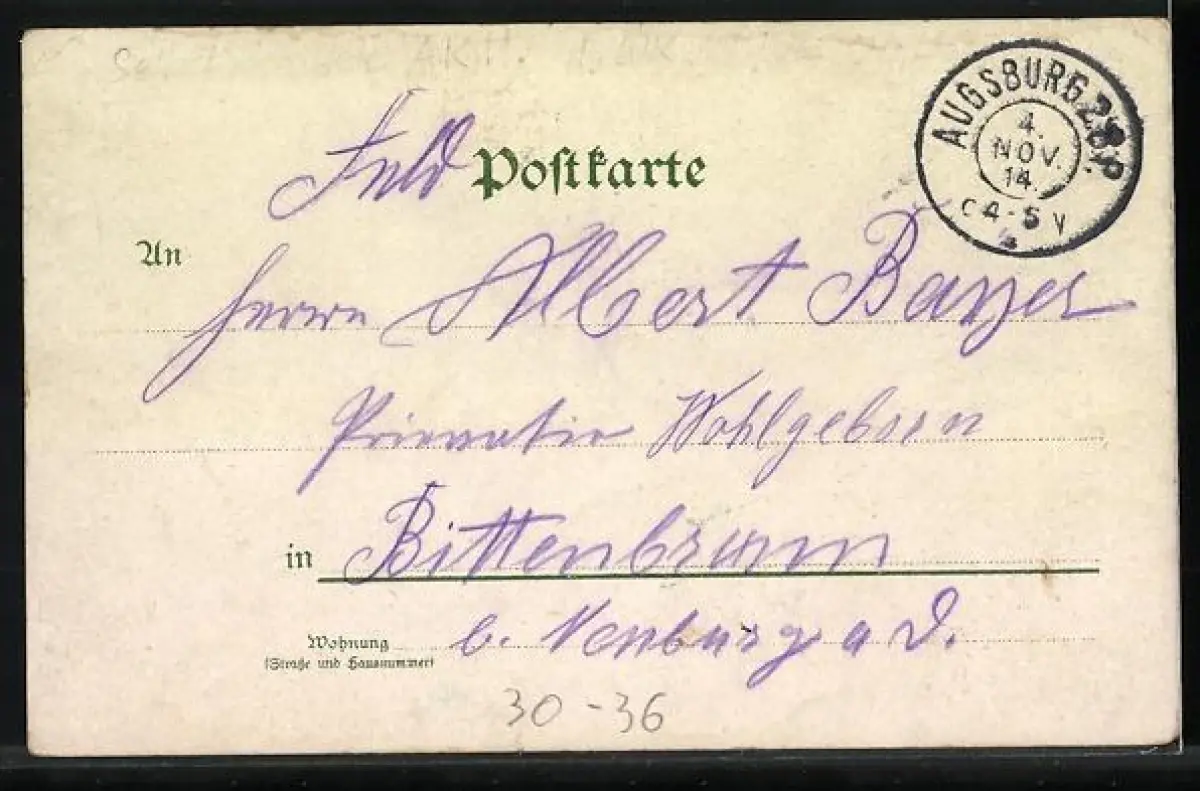 AUGSBURG 2 BP.
4.
NOV.
14.
4-5 V
Feld Postkarte
An
Herrn Albert Bayer
Privatier Wohlgeboren
in Bittenbrunn
Wohnung b. Neuburg a D.
(Straße und Hausnummer)
30-36